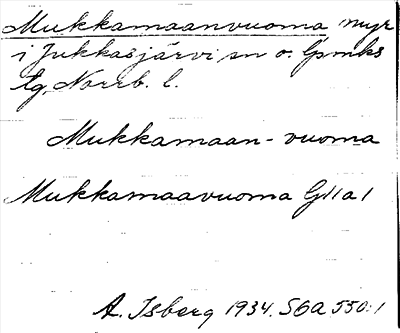 Mukkamaanvuoma myr
i Jukkasjärvi sn o. Gpmks
lg, Norrb. l.
Mukkamaan-vuoma
Mukkamaavuoma G11a1
A. Isberg 1934. SGA 550:1